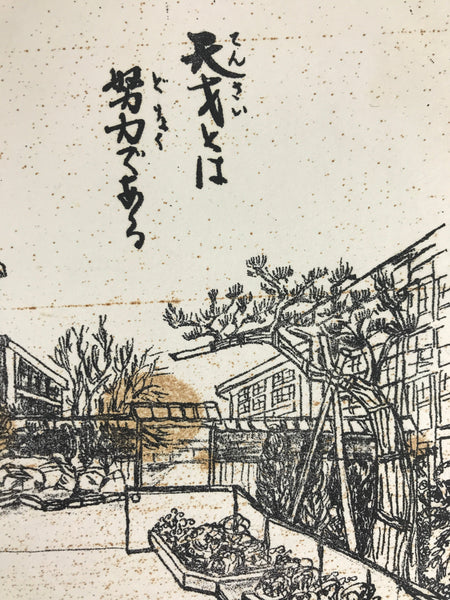 天才とは
てんさい
努力である
どりよく